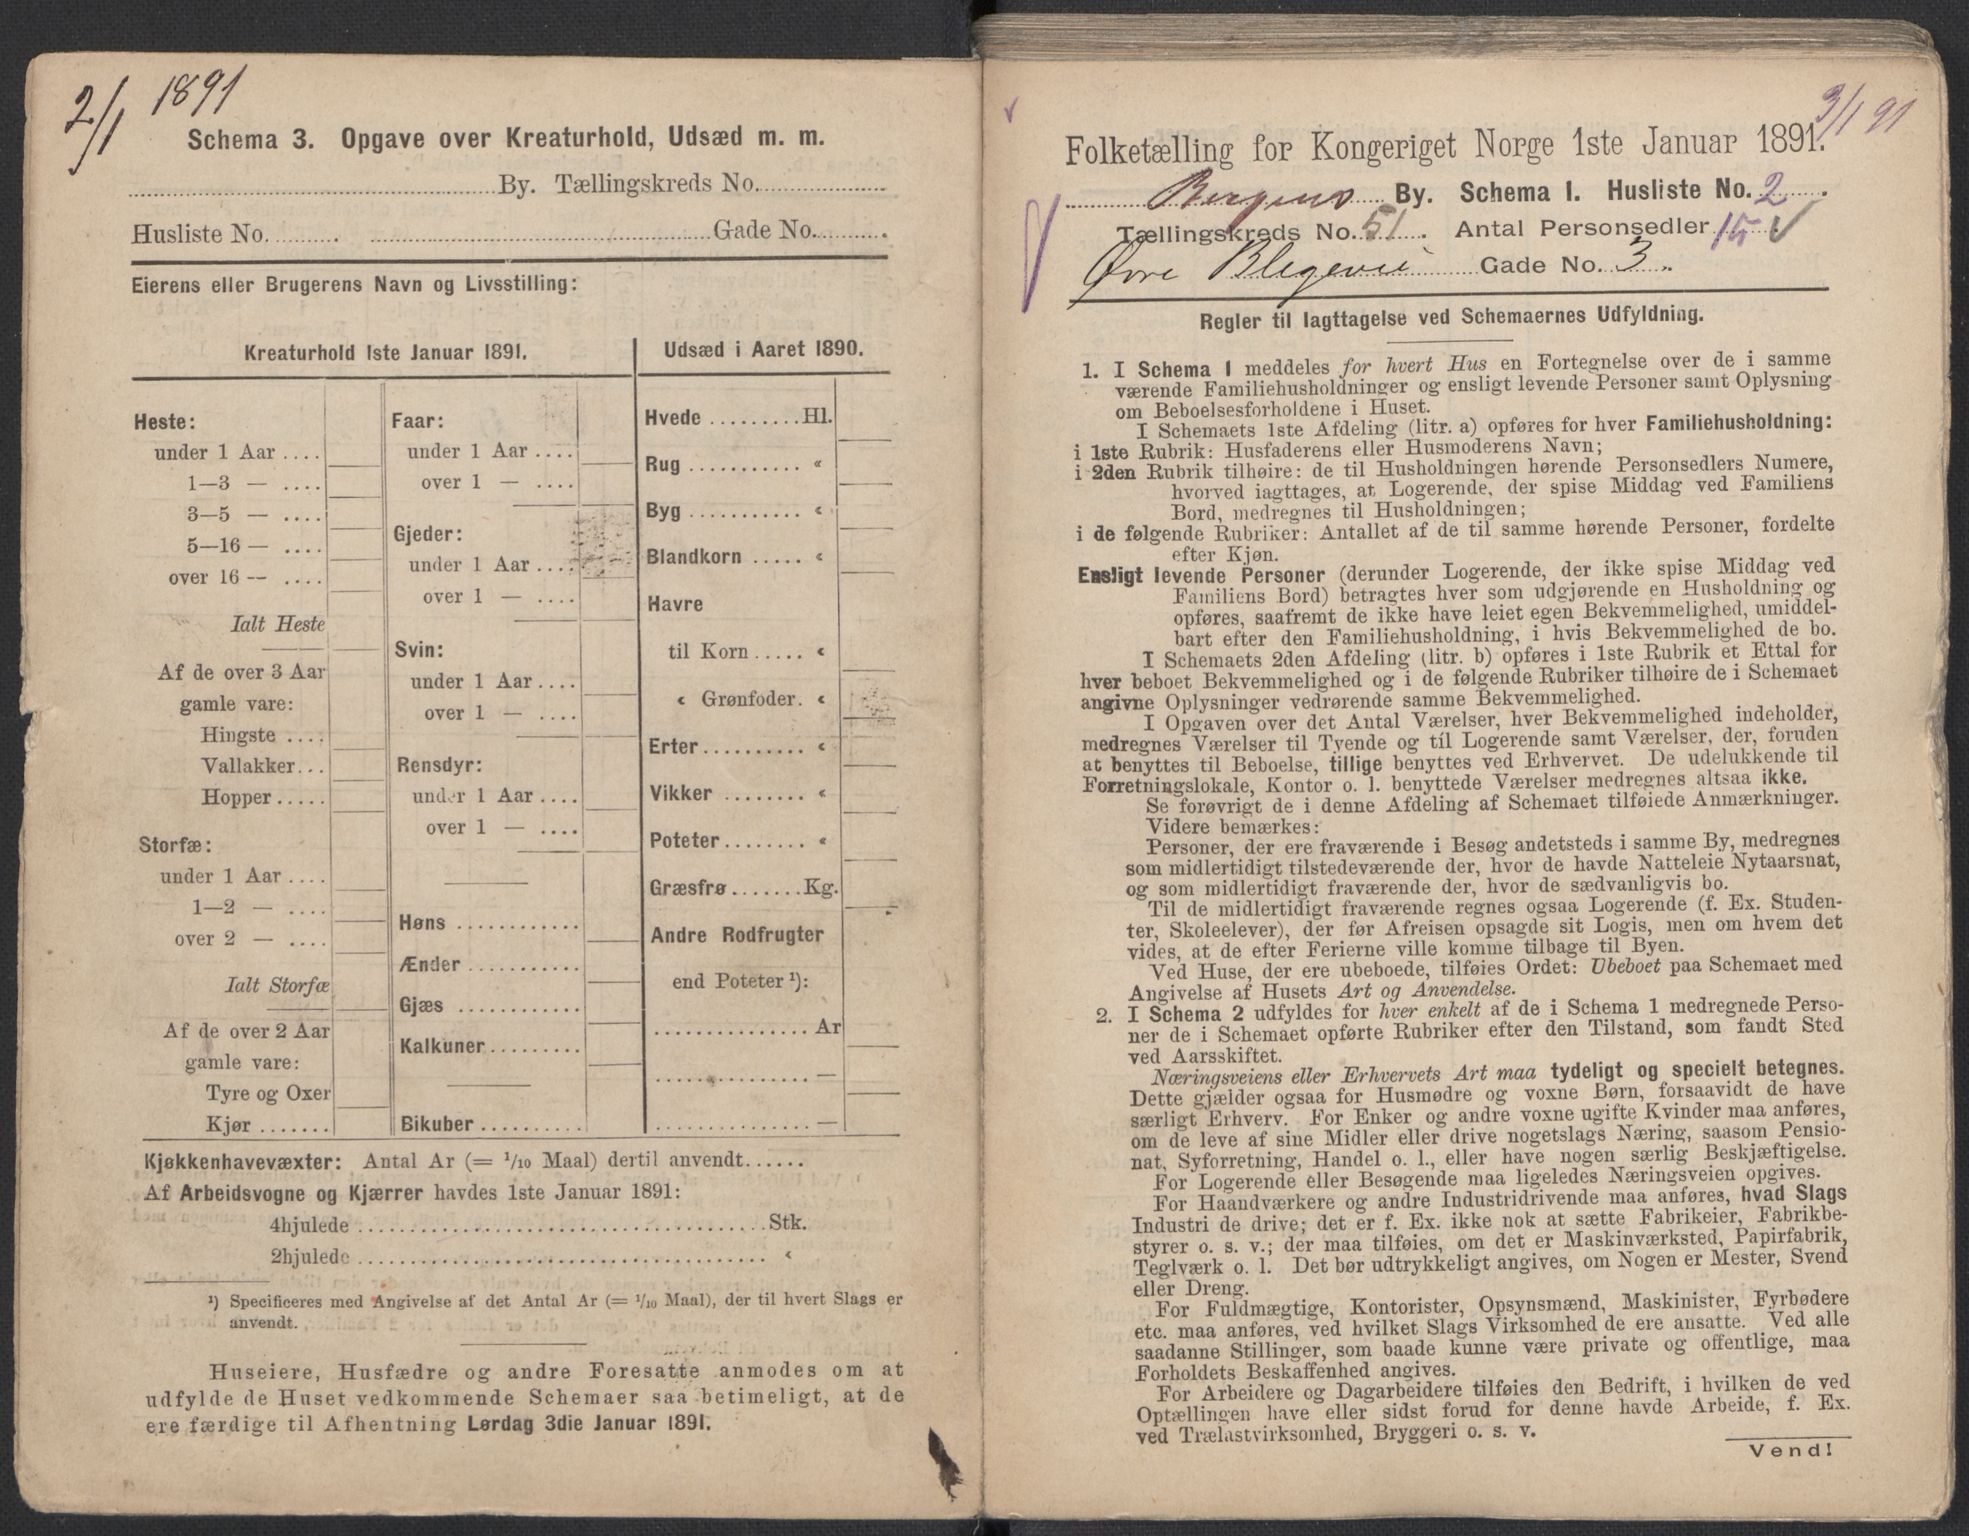 2/1 1891
Schema 3. Opgave over Kreaturhold, Udsæd m. m.
By. Tællingskreds No.
Husliste No. Gade No.
Eierens eller Brugerens Navn og Livsstilling:
Kreaturhold 1ste Januar 1891.
Heste:
under 1 Aar ....
1—3 — ....
3—5 — ....
5—16 — ....
over 16 — ....
Ialt Heste
Af de over 3 Aar
gamle vare:
Hingste ....
Vallakker...
Hopper .....
Storfæ:
under 1 Aar ....
1—2 — ....
over 2 — ....
Ialt Storfæ
Af de over 2 Aar
gamle vare:
Tyre og Oxer
Kjør .......
Faar:
under 1 Aar ....
over 1 — ....
Gjeder:
under 1 Aar ....
over 1 — ....
Svin:
under 1 Aar ....
over 1 — ....
Rensdyr:
under 1 Aar ....
over 1 — ....
Høns ............
Ænder ...........
Gjæs ............
Kalkuner.........
Bikuber ..........
Udsæd i Aaret 1890.
Hvede .........Hl.
Rug ........... «
Byg ........... «
Blandkorn ..... «
Havre
til Korn ..... «
« Grønfoder. «
Erter.......... «
Vikker ........ «
Poteter........ «
Græsfrø .......Kg.
Andre Rodfrugter
end Poteter ¹):
............... Ar
............... —
............... —
Kjøkkenhavevæxter: Antal Ar (= 1/10 Maal) dertil anvendt......
Af Arbeidsvogne og Kjærrer havdes 1ste Januar 1891:
4hjulede ........................................Stk.
2hjulede ........................................ «
¹) Specificeres med Angivelse af det Antal Ar (= 1/10 Maal), der til hvert Slags er
anvendt.
Huseiere, Husfædre og andre Foresatte anmodes om at
udfylde de Huset vedkommende Schemaer saa betimeligt, at de
ere færdige til Afhentning Lørdag 3die Januar 1891.
3/1 91
Folketælling for Kongeriget Norge 1ste Januar 1891.
Bergens By. Schema 1. Husliste No. 2.
Tællingskreds No. 51. Antal Personsedler 15
Øvre Blegevei Gade No. 3.
Regler til Iagttagelse ved Schemaernes Udfyldning.
1. I Schema 1 meddeles for hvert Hus en Fortegnelse over de i samme
værende Familiehusholdninger og ensligt levende Personer samt Oplysning
om Beboelsesforholdene i Huset.
I Schemaets 1ste Afdeling (litr. a) opføres for hver Familiehusholdning:
i 1ste Rubrik: Husfaderens eller Husmoderens Navn;
i 2den Rubrik tilhøire: de til Husholdningen hørende Personsedlers Numere,
hvorved iagttages, at Logerende, der spise Middag ved Familiens
Bord, medregnes til Husholdningen;
i de følgende Rubriker: Antallet af de til samme hørende Personer, fordelte
efter Kjøn.
Ensligt levende Personer (derunder Logerende, der ikke spise Middag ved
Familiens Bord) betragtes hver som udgjørende en Husholdning og
opføres, saafremt de ikke have leiet egen Bekvemmelighed, umiddel-
bart efter den Familiehusholdning, i hvis Bekvemmelighed de bo.
I Schemaets 2den Afdeling (litr. b) opføres i 1ste Rubrik et Ettal for
hver beboet Bekvemmelighed og i de følgende Rubriker tilhøire de i Schemaet
angivne Oplysninger vedrørende samme Bekvemmelighed.
I Opgaven over det Antal Værelser, hver Bekvemmelighed indeholder,
medregnes Værelser til Tyende og til Logerende samt Værelser, der, foruden
at benyttes til Beboelse, tillige benyttes ved Erhvervet. De udelukkende til
Forretningslokale, Kontor o. l. benyttede Værelser medregnes altsaa ikke.
Se forøvrigt de i denne Afdeling af Schemaet tilføiede Anmærkninger.
Videre bemærkes:
Personer, der ere fraværende i Besøg andetsteds i samme By, medregnes
som midlertidigt tilstedeværende der, hvor de havde Natteleie Nytaarsnat,
og som midlertidigt fraværende der, hvor de sædvanligvis bo.
Til de midlertidigt fraværende regnes ogsaa Logerende (f. Ex. Studen-
ter, Skoleelever), der før Afreisen opsagde sit Logis, men om hvem det
vides, at de efter Ferierne ville komme tilbage til Byen.
Ved Huse, der ere ubeboede, tilføies Ordet: Ubeboet paa Schemaet med
Angivelse af Husets Art og Anvendelse.
2. I Schema 2 udfyldes for hver enkelt af de i Schema 1 medregnede Perso-
ner de i Schemaet opførte Rubriker efter den Tilstand, som fandt Sted
ved Aarsskiftet.
Næringsveiens eller Erhvervets Art maa tydeligt og specielt betegnes.
Dette gjælder ogsaa for Husmødre og voxne Børn, forsaavidt de have
særligt Erhverv. For Enker og andre voxne ugifte Kvinder maa anføres,
om de leve af sine Midler eller drive nogetslags Næring, saasom Pensio-
nat, Syforretning, Handel o. l., eller have nogen særlig Beskjæftigelse.
For Logerende eller Besøgende maa ligeledes Næringsveien opgives.
For Haandværkere og andre Industridrivende maa anføres, hvad Slags
Industri de drive; det er f. Ex. ikke nok at sætte Fabrikeier, Fabrikbe-
styrer o. s. v.; der maa tilføies, om det er Maskinværksted, Papirfabrik,
Teglværk o. l. Det bør udtrykkeligt angives, om Nogen er Mester, Svend
eller Dreng.
For Fuldmægtige, Kontorister, Opsynsmænd, Maskinister, Fyrbødere
etc. maa anføres, ved hvilket Slags Virksomhed de ere ansatte. Ved alle
saadanne Stillinger, som baade kunne være private og offentlige, maa
Forholdets Beskaffenhed angives.
For Arbeidere og Dagarbeidere tilføies den Bedrift, i hvilken de ved
Optællingen have eller sidst forud for denne havde Arbeide, f. Ex.
ved Trælastvirksomhed, Bryggeri o. s. v.
Vend!